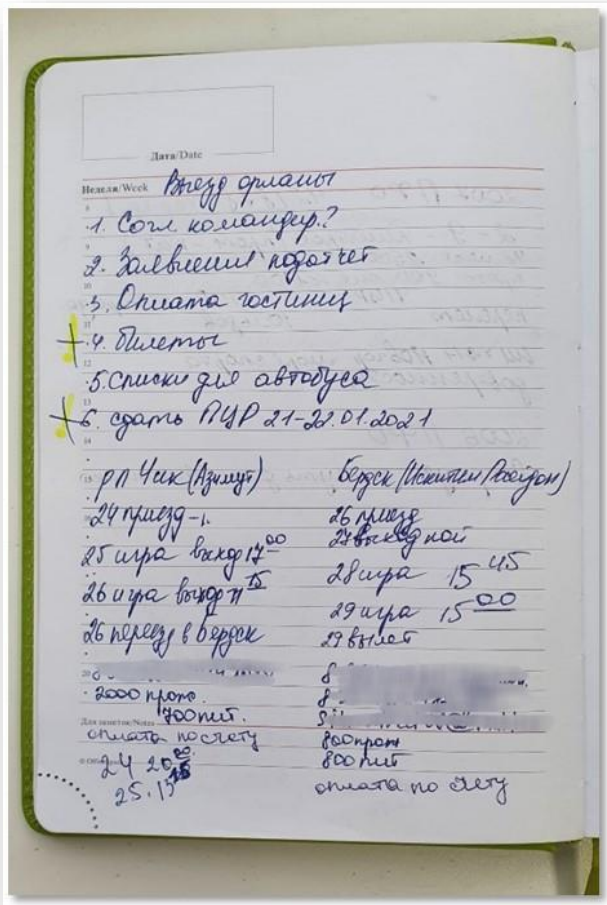 Дата/Date
Неделя/Week Выезд орланы
1. Согл командир.?
2. Заявления подотчет
3. Оплата гостиниц
4. билеты
5. Списки для автобуса
6. сдать ПЦР 21-22.01.2021
рп Чик (Азимут)
24 приезд
25 игра выход 17 00
26 игра выход 11 15
26 переезд в Бердск
2000 прож.
700 пит.
Для заметок/Notes
оплата по счету
24 20 00
25.
Бердск (Искитим
26 приезд
27 выходной
28 игра 15 45
29 игра 15 00
29 вылет
800 прож
800 пит
оплата по счету